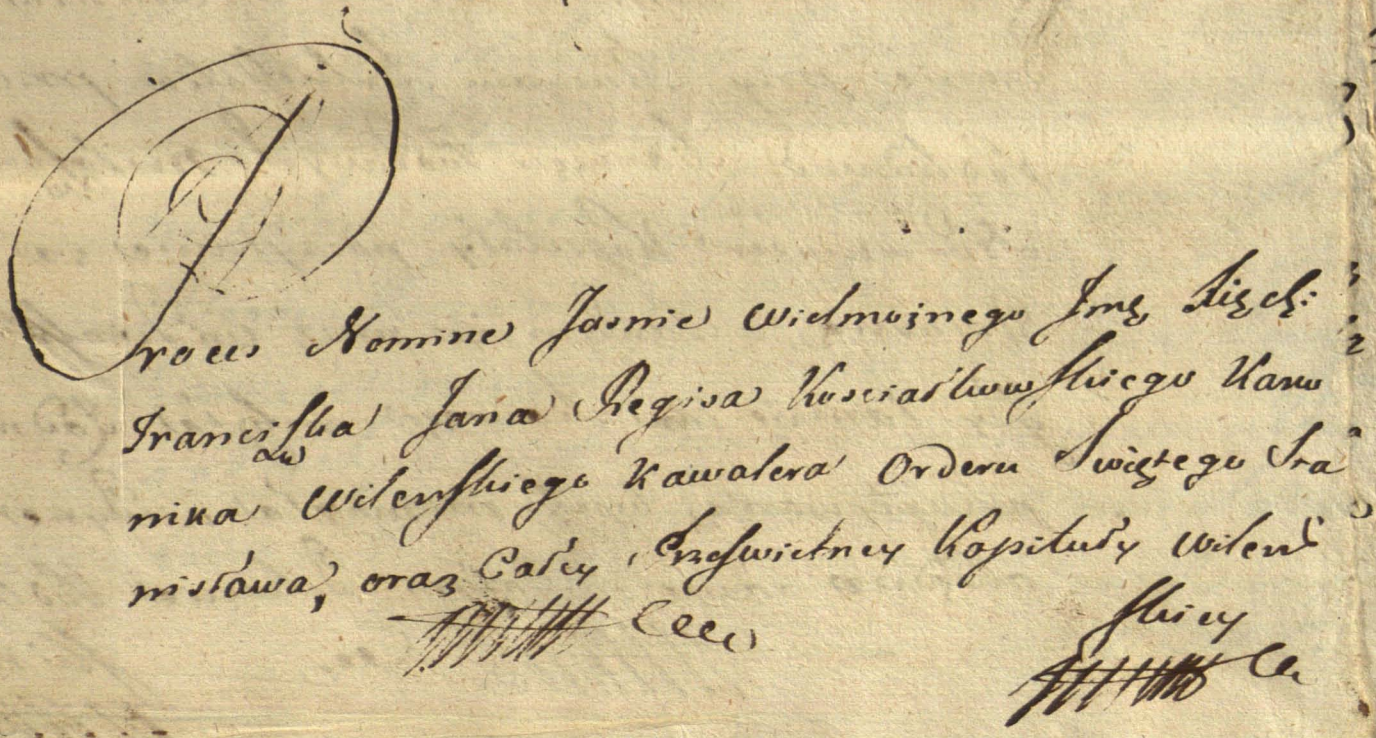 Proces Nomine Jasnie Wielmożnego Jmę Xiędz
Franciszka Jana Regisa Kosciałkowskiego Kano
nika Wilenskiego Kawalera Orderu Swiętego Sta
nisława, oraz Całey Przeswietney Kapituły Wilen
skiey